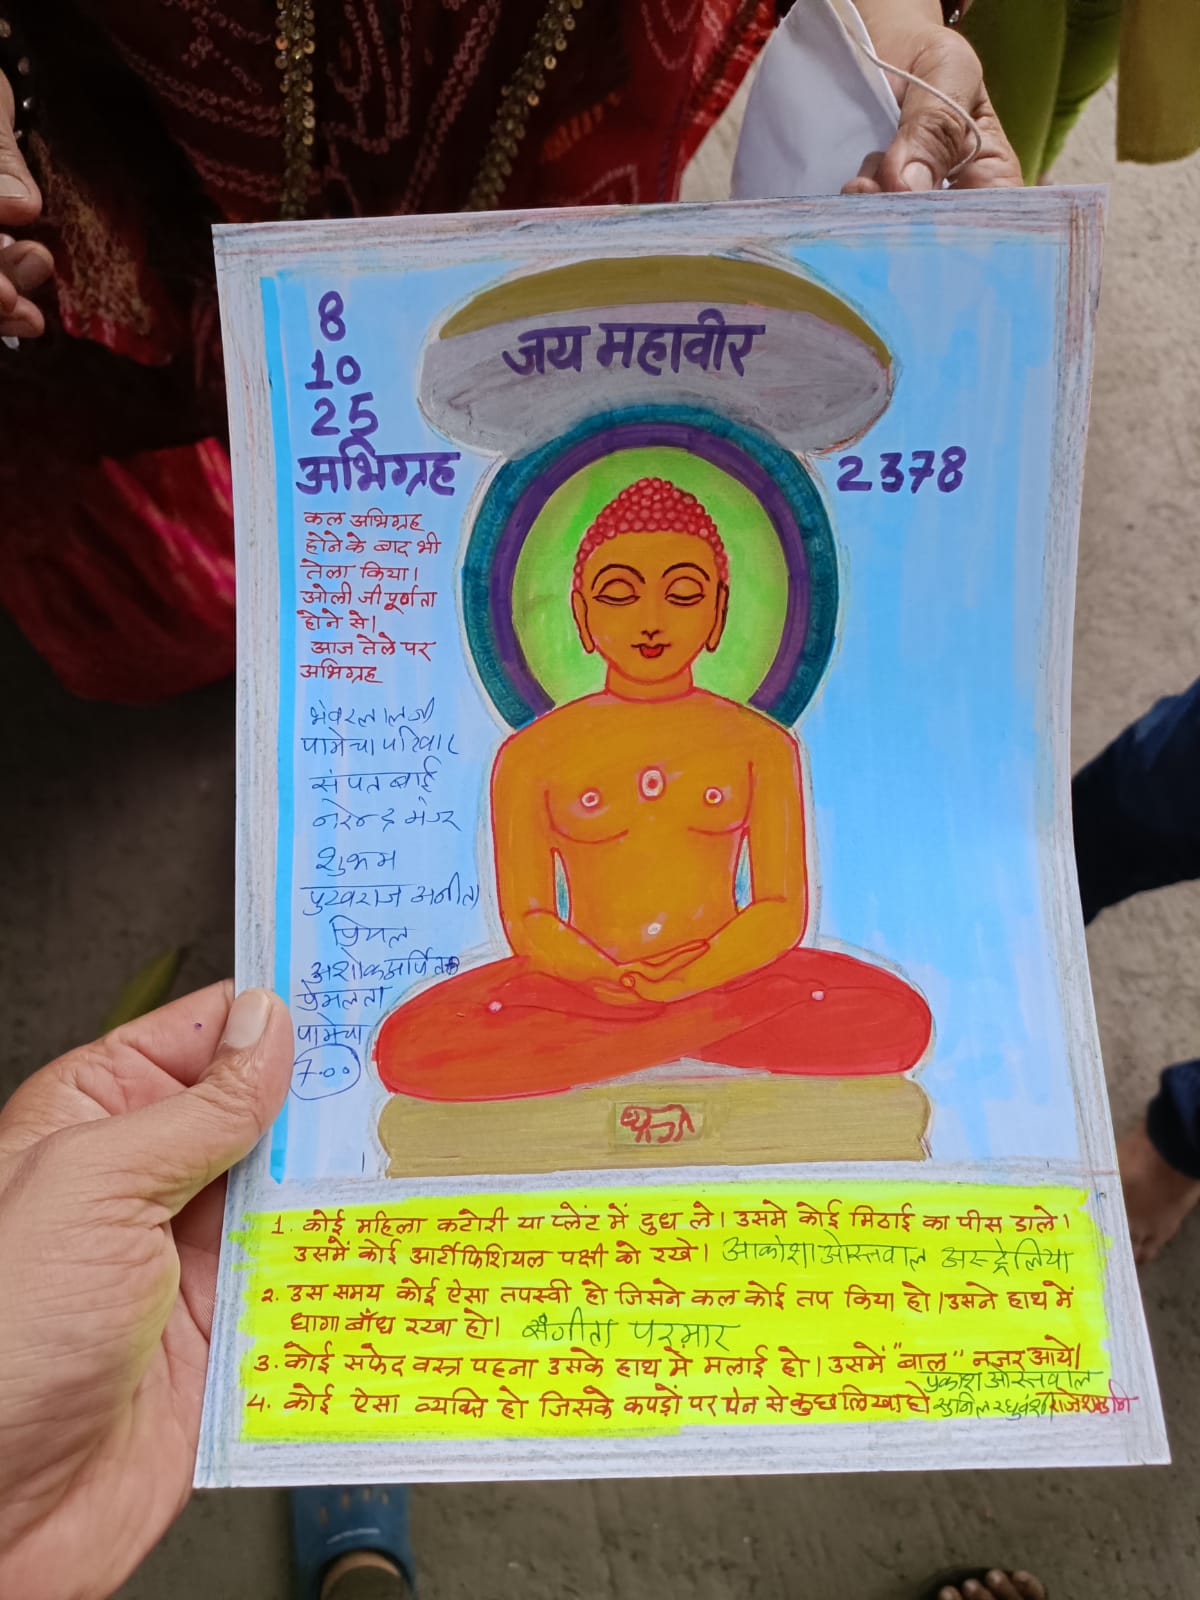 जय महावीर
8
10
25
अभिग्रह
2378
कल अभिग्रह
होने के बाद भी
तेला किया।
ओली जी पूर्णता
होने से।
आज तेले पर
अभिग्रह
भंवरलालजी
पामेचा परिवार
संपत बाई
नरेन्द्र मंजू
शुभम
पुखराज अनीता
प्रियल
अशोक अर्पित
प्रेमलता
पामेचा
700
1. कोई महिला कटोरी या प्लेंट में दुध ले। उसमे कोई मिठाई का पीस डाले।
उसमें कोई आर्टीफिशियल पक्षी को रखे। आकांशा ओस्तवाल अस्ट्रेलिया
2. उस समय कोई ऐसा तपस्वी हो जिसने कल कोई तप किया हो। उसने हाथ में
धागा बाँध रखा हो। संगीता परमार
3. कोई सफेद वस्त्र पहना उसके हाथ में मलाई हो। उसमें "बाल" नजर आये।
प्रकाश ओस्तवाल
4. कोई ऐसा व्यक्ति हो जिसके कपड़ों पर पेन से कुछ लिखा हो सुनिल रघुवंशी राजेश